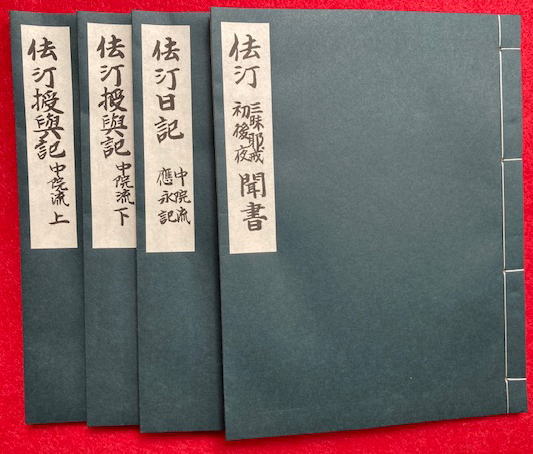 佉汀
三昧耶戒
初後夜
聞書
佉汀日記
中院流
應永記
佉汀授與記 中院流 下
佉汀授與記 中院流 上